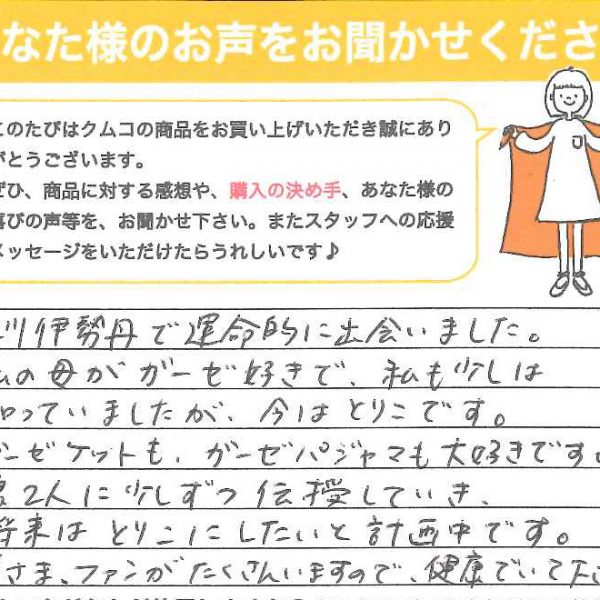 なた様のお声をお聞かせくださ
このたびはクムコの商品をお買い上げいただき誠にあり
がとうございます。
ぜひ、商品に対する感想や、購入の決め手、あなた様の
喜びの声等を、お聞かせ下さい。またスタッフへの応援
メッセージをいただけたらうれしいです♪
川伊勢丹で運命的に出会いました。
私の母がガーゼ好きで、私も少しは
知っていましたが、今はとりこです。
ガーゼケットも、ガーゼパジャマも大好きです。
2人に少しずつ伝授していき、
将来はとりこにしたいと計画中です。
さま、ファンがたくさんいますので、健康でいて下さ